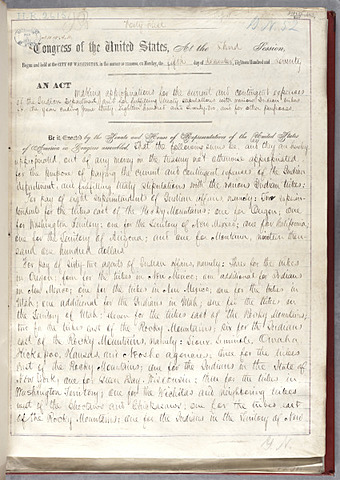 Forty-first
Congress of the United States, At the Third Session,
Begun and held at the CITY OF WASHINGTON, in the District of Columbia, on Monday, the fifth day of December, Eighteen Hundred and seventy
AN ACT making appropriations for the current and contingent expenses
of the Indian Department, and for fulfilling treaty stipulations with various Indian tribes,
for the year ending June thirty, eighteen hundred and seventy-two, and for other purposes.
Be it Enacted by the Senate and House of Representatives of the United States
of America in Congress assembled, That the following sums be, and they are hereby
appropriated, out of any money in the treasury not otherwise appropriated
for the purpose of paying the current and contingent expenses of the Indian
department, and fulfilling treaty stipulations with the various Indian tribes:
For pay of eight superintendents of Indian affairs, namely: Two superin-
tendents for the tribes east of the Rocky Mountains; one for Oregon; one
for Washington Territory; one for the Territory of New Mexico; one for California;
one for the Territory of Arizona; and one for Montana,
sand one hundred dollars.
For pay of sixty-two agents of Indian affairs, namely: Three for the tribes
in Oregon; four for the tribes in New Mexico; one additional for Indians
in New Mexico; one for the tribes in New Mexico; one for the tribes in
Utah; one additional for the Indians in Utah; one for the tribes in
the Territory of Utah; eleven for the tribes east of the Rocky Mountains;
two for the tribes east of the Rocky Mountains; six for the Indians
east of the Rocky Mountains, namely: Sioux, Seminole, Omaha,
Kickapoo, Kansas and Neosho agencies; three for the tribes
east of the Rocky Mountains; one for the Indians in the State of
New York; one for Green Bay, Wisconsin; three for the tribes in
Washington Territory; one for the Wichitas and neighboring tribes
west of the Choctaws and Chickasaws; one for the tribes east
of the Rocky Mountains; one for the Indians in the Territory of New